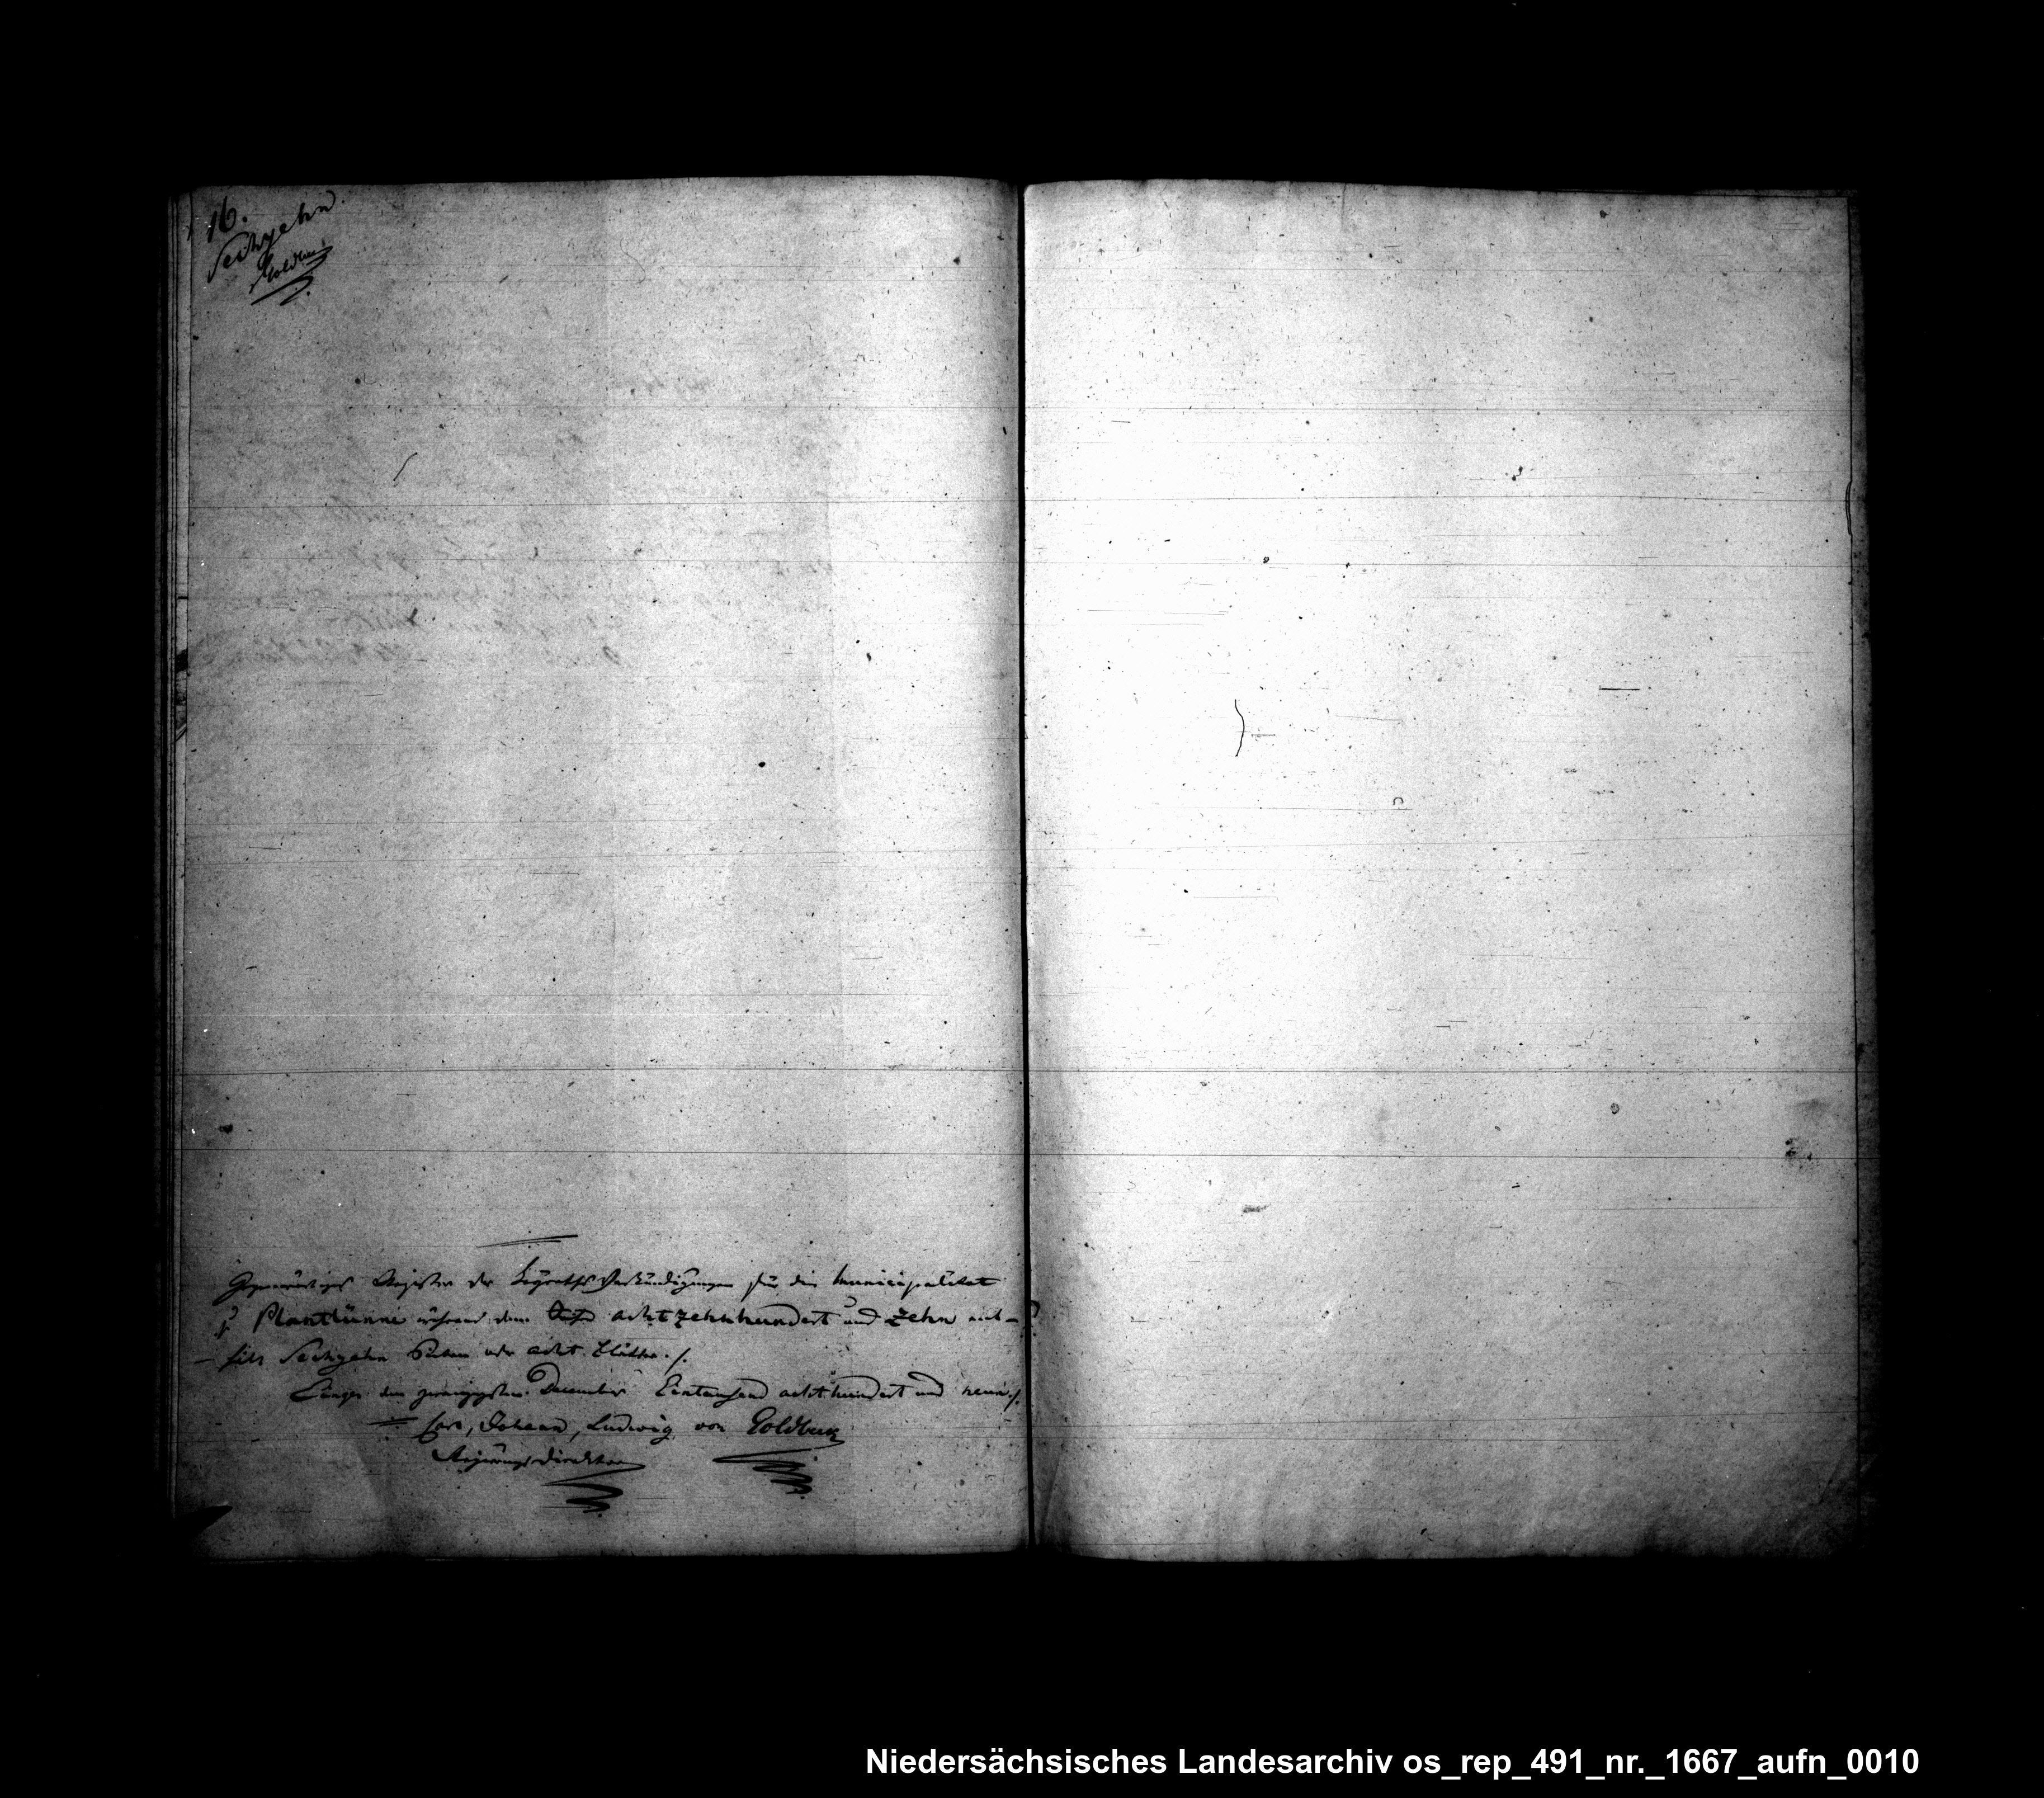 16.
Sechzehn.
Goldbeck
Gegenwärtiges Register der Heyraths Verkündigungen für die Municipalitaet
Plantlünne während dem Jahre achtzehnhundert und zehn ent-
-hält Sechzehn Seiten oder acht Blätter ./.
Lingen den zwanzigsten December Eintausend achthundert und neun ./.
Carl, Johann, Ludwig von Goldbeck
Regierungs Direktor
Niedersächsisches Landesarchiv os_rep_491_nr._1667_aufn_0010